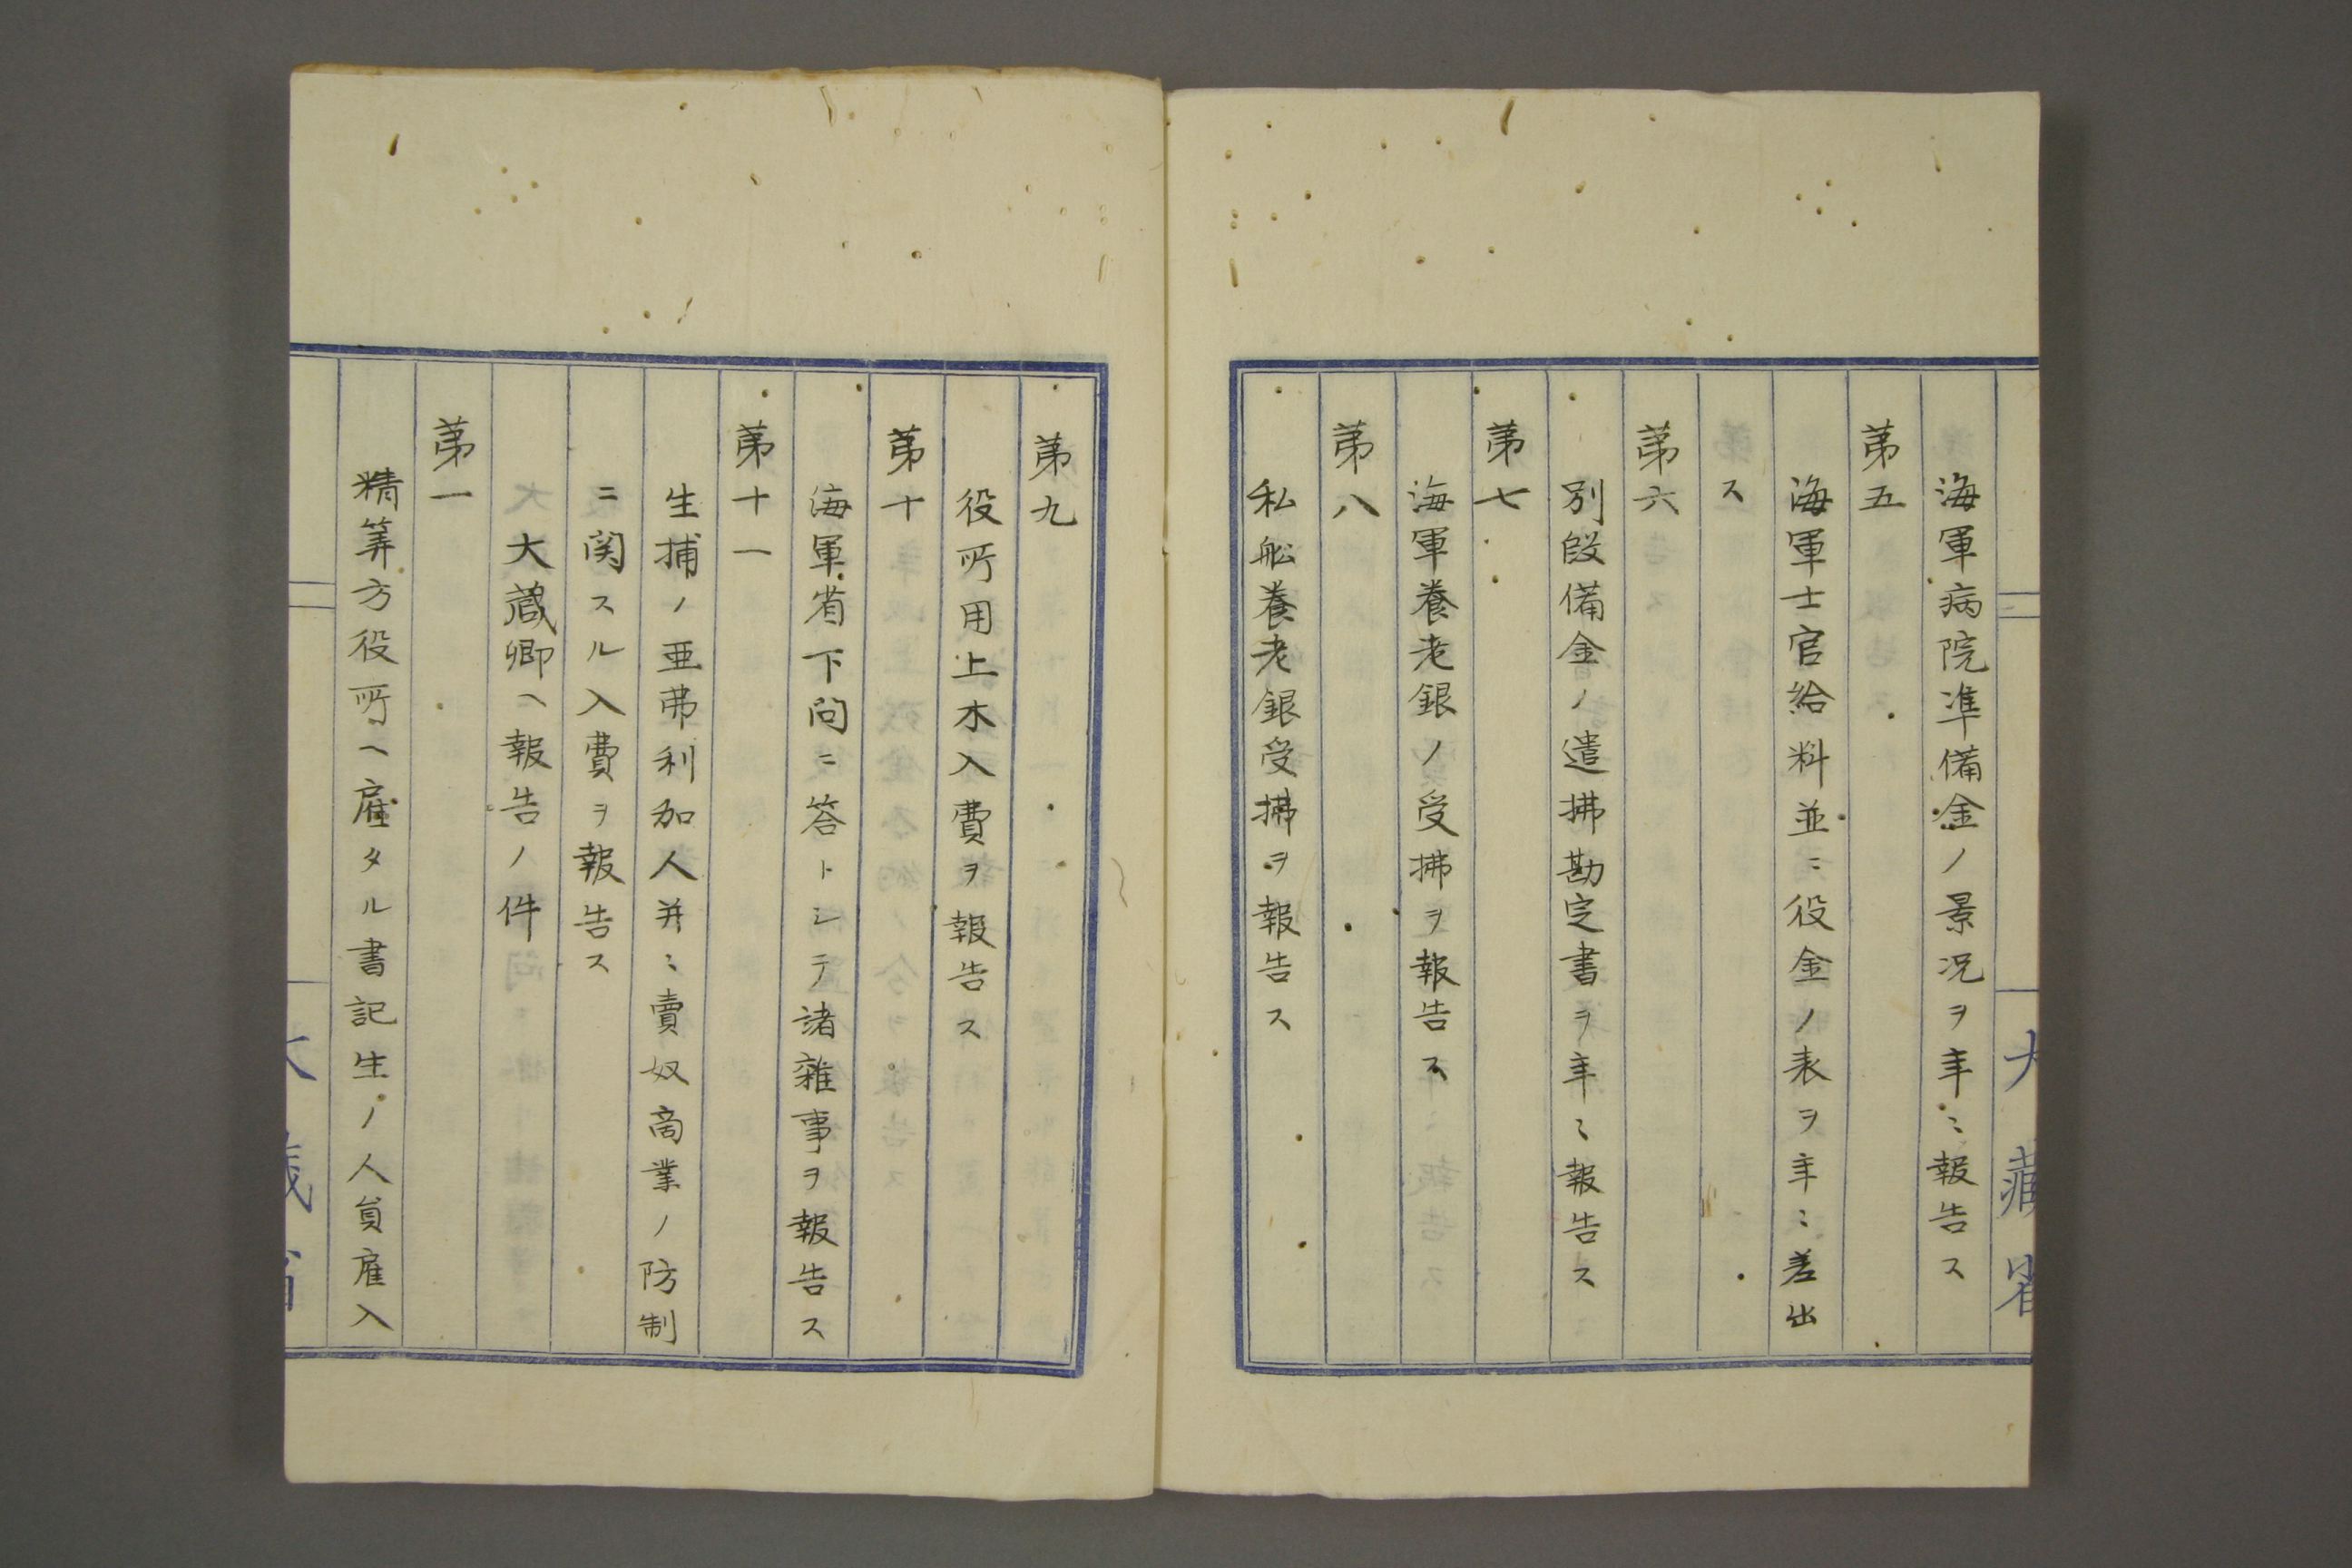 海軍病院準備金ノ景況ヲ年ニ報告ス
第五
海軍士官給料並ニ役金ノ表ヲ年ニ差出
ス
第六
別段備金ノ遣拂勘定書ヲ年ニ報告ス
第七
海軍養老銀ノ受拂ヲ報告ス
第八
私舩養老銀受拂ヲ報告ス
第九
役所用土木入費ヲ報告ス
第十
海軍省下問ニ答トシテ諸雜事ヲ報告ス
第十一
生捕ノ亜弗利加人并ニ賣奴商業ノ防制
ニ関スル入費ヲ報告ス
大蔵卿ヘ報告ノ件
第一
精算方役所ヘ雇タル書記生ノ人員雇入
大藏省